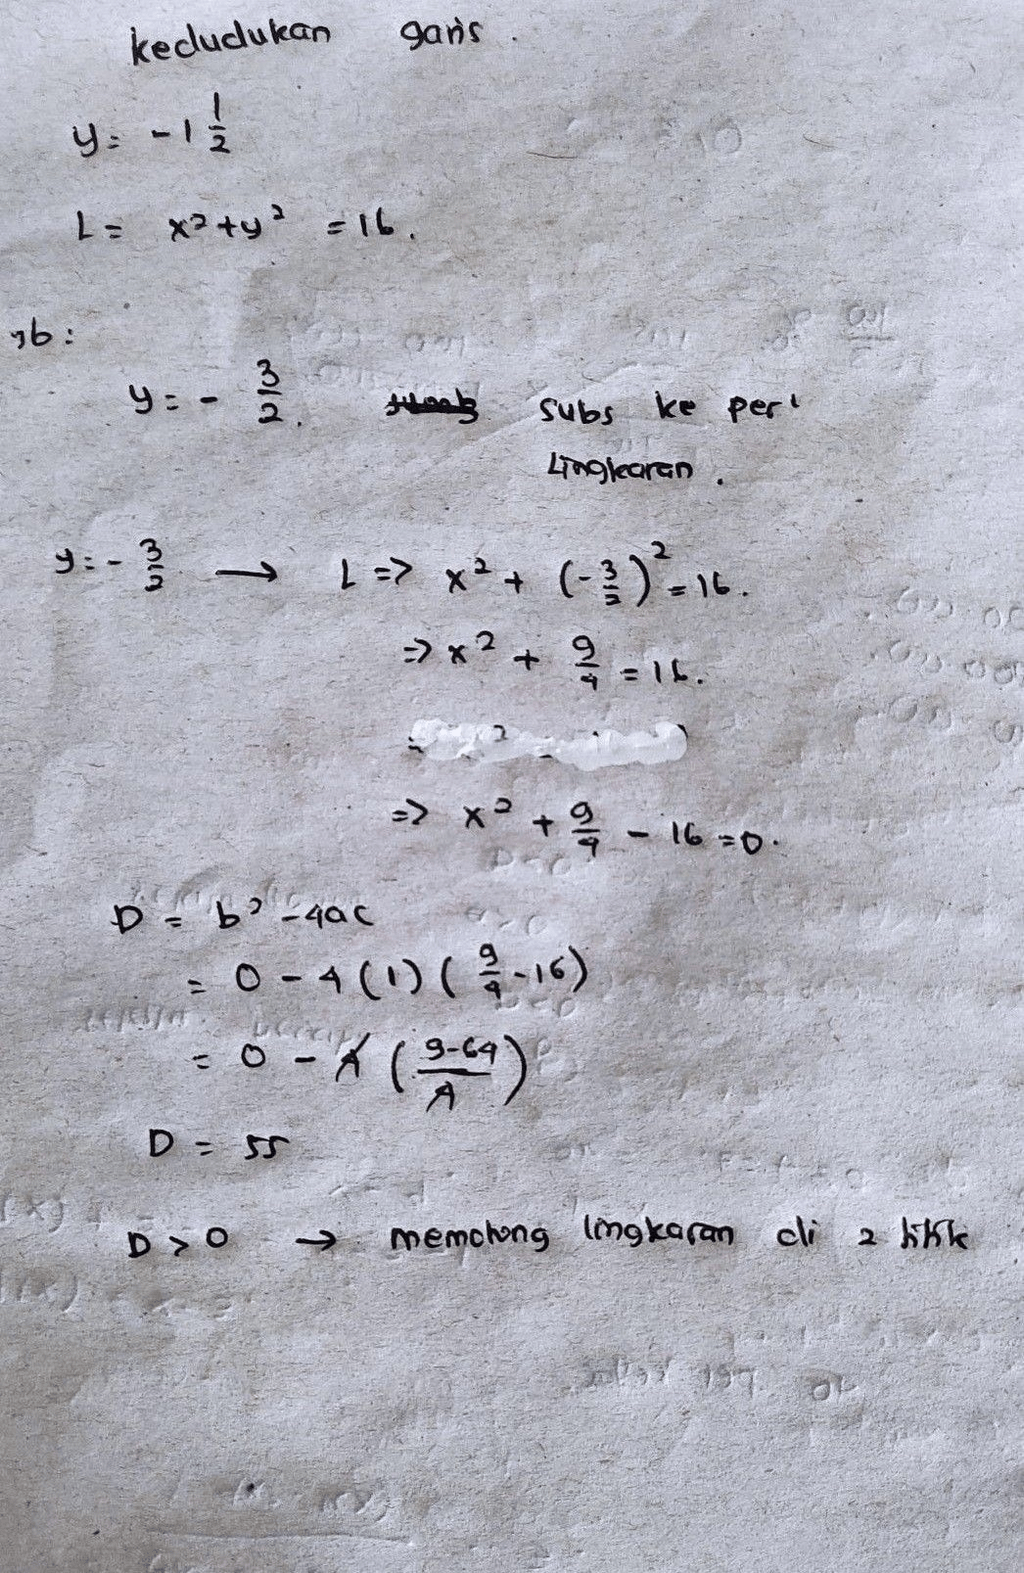 kedudukan garis.
y = -1 1/2
L = x² + y² = 16.
jb:
y = - 3/2. subs ke per'
Lingkaran.
y = - 3/2 → L => x² + (-3/2)² = 16.
=> x² + 9/4 = 16.
=> x² + 9/4 - 16 = 0.
D = b² - 4ac
= 0 - 4 (1) (9/4 - 16)
= 0 - 4 (9-64/4)
D = 55
D > 0 → memotong lingkaran di 2 titik